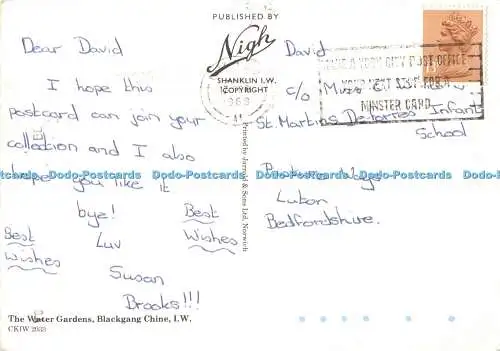 PUBLISHED BY
Nigh
SHANKLIN I.W.
COPYRIGHT
Printed by Jarrold & Sons Ltd, Norwich
Dear David
I hope this
postcard can join your
collection and I also
hope you like it
bye!
Best
Wishes
Best
Wishes
Luv
Susan
Brooks!!!
David
c/o Miss
St. Martins De Porres Infants
School
Luton
Bedfordshire.
POST OFFICE
YOUR NEXT
FOR A
MINSTER CARD
The Water Gardens, Blackgang Chine, I.W.
CKIW 2033
Dodo-Postcards Dodo-Postcards Dodo-Postcards Dodo-Postcards Dodo-Postcards